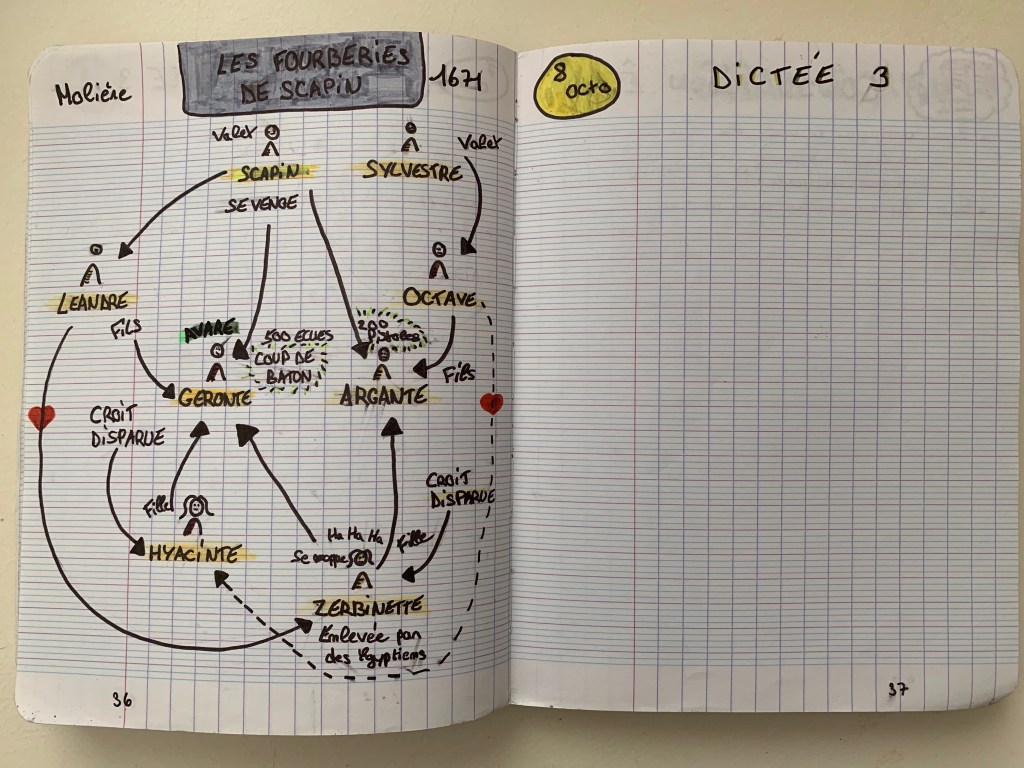 Molière
LES FOURBERIES
DE SCAPIN
1671
Valet
SCAPIN
SE VENGE
SYLVESTRE
Valet
LEANDRE
OCTAVE
Fils
AVARE
500 ECUES
COUP DE
BATON
200
Pistoles
GERONTE
ARGANTE
Fils
CROIT
DISPARUE
CROIT
DISPARUE
Fille
HYACINTE
Ha Ha Ha
Se moque
Fille
ZERBINETTE
Enlevée par
des Egyptiens
36
8
octo
DICTÉE 3
37